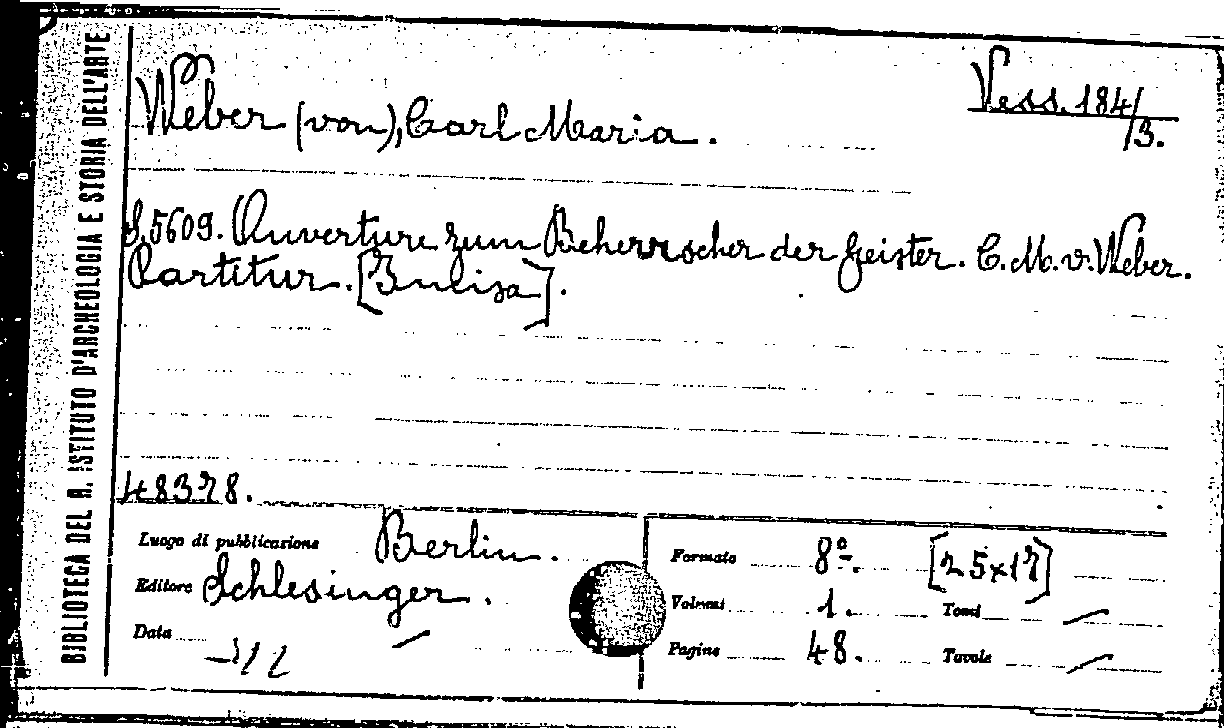 BIBLIOTECA DEL R. ISTITUTO D'ARCHEOLOGIA E STORIA DELL'ARTE
Weber (von), Carl Maria.
Vess. 184/3.
S. 5609. Ouverture zum Beherrscher der Geister. C. M. v. Weber.
Partitur.
48378.
Luogo di pubblicazione Berlin.
Editore Schlesinger.
Data /
Formato 8º. [25x17]
Volumi 1. Tomi /
Pagine 48. Tavole /